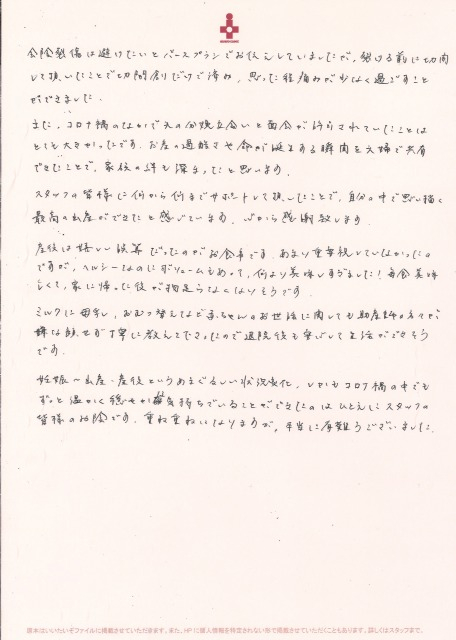 会陰裂傷は避けたいとバースプランでお伝えしていましたが、裂ける前に切開
して頂いたことで切開創だけで済み、思った程痛みが少なく過ごすこと
ができました。
また、コロナ禍のなかで夫の分娩立会いと面会が許可されていたことは
とても大きかったです。お産の過酷さや命が誕生する瞬間を夫婦で共有
できたことで、家族の絆も深まったと思います。
スタッフの皆様に何から何までサポートして頂いたことで、自分の中で思い描く
最高の出産ができたと感じています。心から感謝致します。
産後は嬉しい誤算だったのがお食事です。あまり重要視していなかったの
ですが、ヘルシーなのにボリュームもあって、何より美味しすぎました！毎食美味
しくて、家に帰った後が物足らなくなりそうです。
ミルクに母乳、おむつ替えなど赤ちゃんのお世話に関しても助産師の方々が
嫌な顔せず丁寧に教えて下さったので退院後も安心して生活ができそう
です。
妊娠〜出産・産後というめまぐるしい状況変化、しかもコロナ禍の中でも
ずっと温かく穏やかな気持ちでいることができたのはひとえにスタッフの
皆様のお陰です。重ね重ねになりますが、本当に有難うございました。
原本はいいたいぞファイルに掲載させていただきます。また、HPに個人情報を特定されない形で掲載させていただくこともあります。詳しくはスタッフまで。